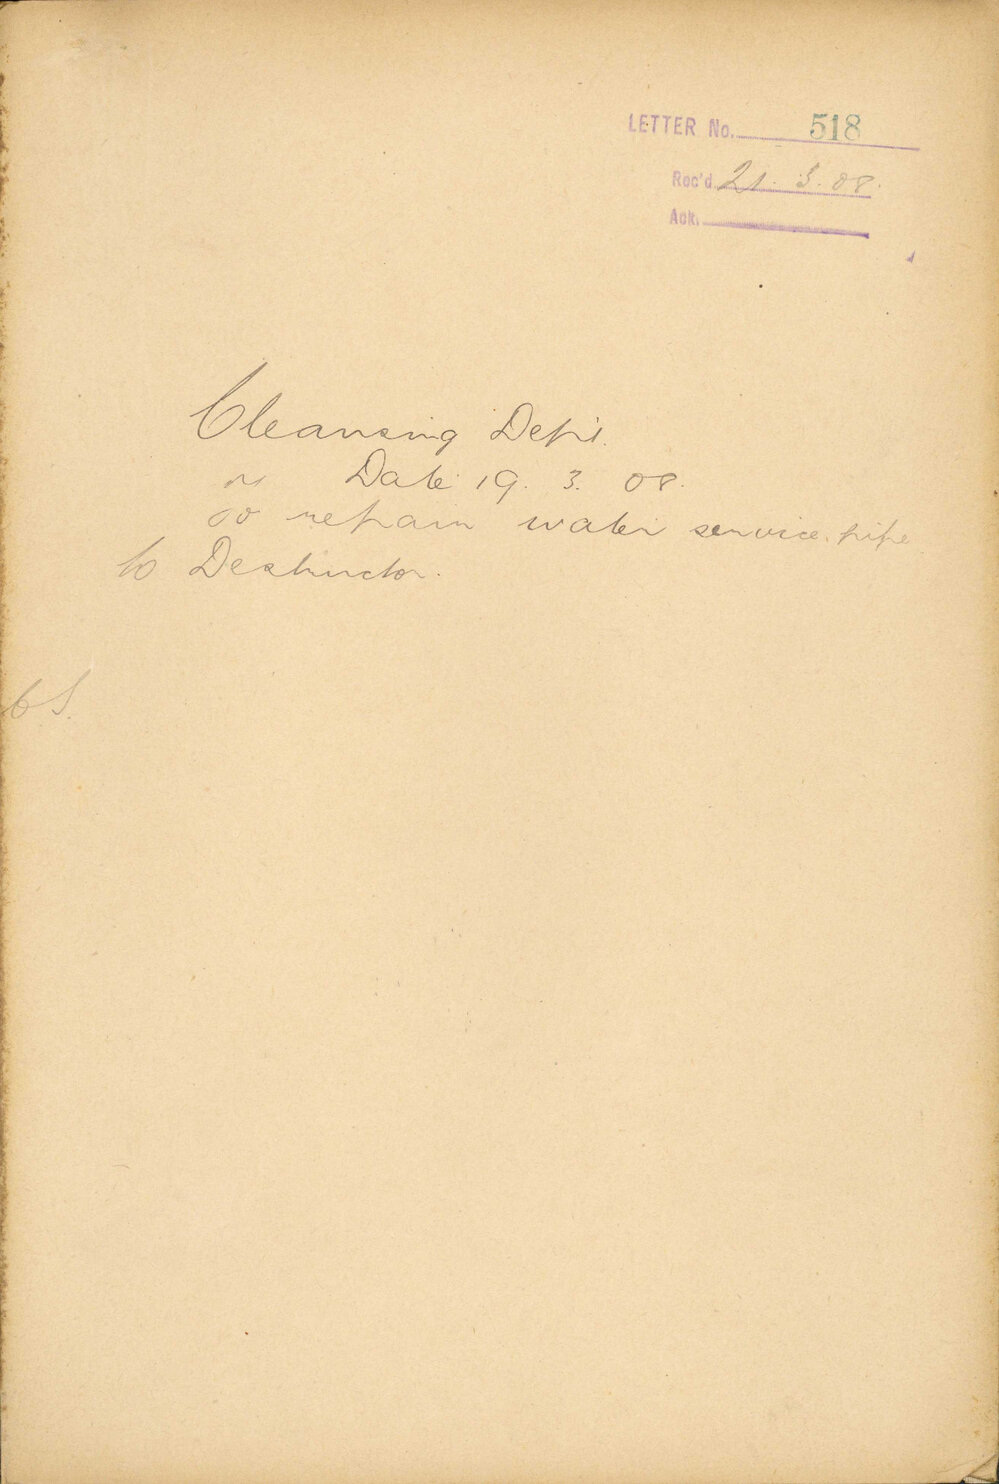 LETTER No. 518
Rec'd 21. 3. 08.
Ack.
Cleansing Dept.
Date 19. 3. 08.
repair water service pipe
to Destructor.